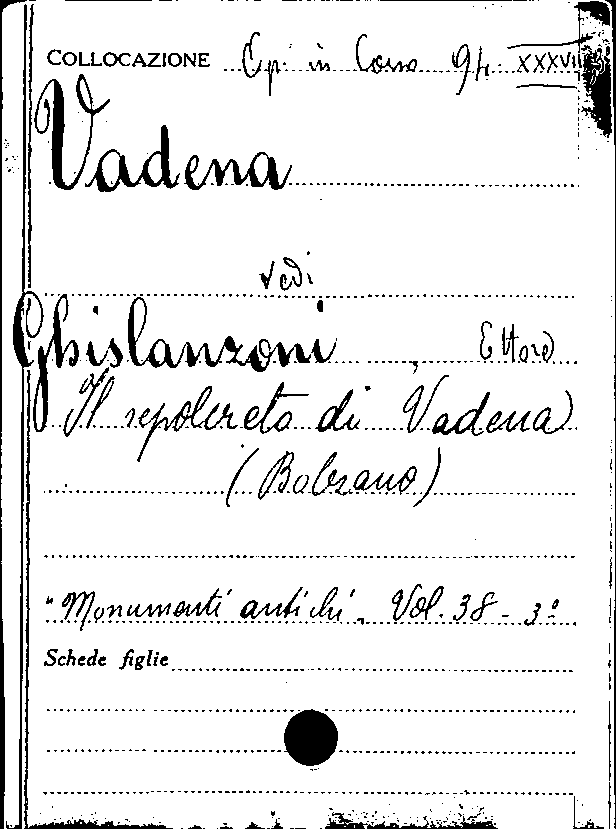 COLLOCAZIONE Op. in Corso 94. XXXVIII
Vadena
vedi
Ghislanzoni, Ettore
Il sepolcreto di Vadena
(Bolzano)
"Monumenti antichi. Vol. 38 - 3º
Schede figlie